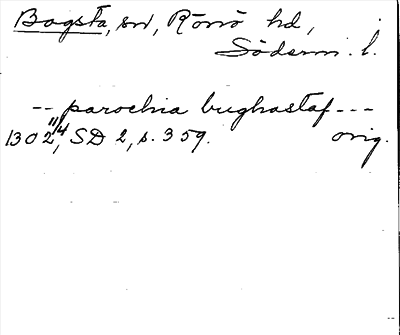 Bogsta, sn, Rönö hd,
Söderm. l.
-- parochia bughastaf ---
1302 11/4, SD 2, s. 359. orig.